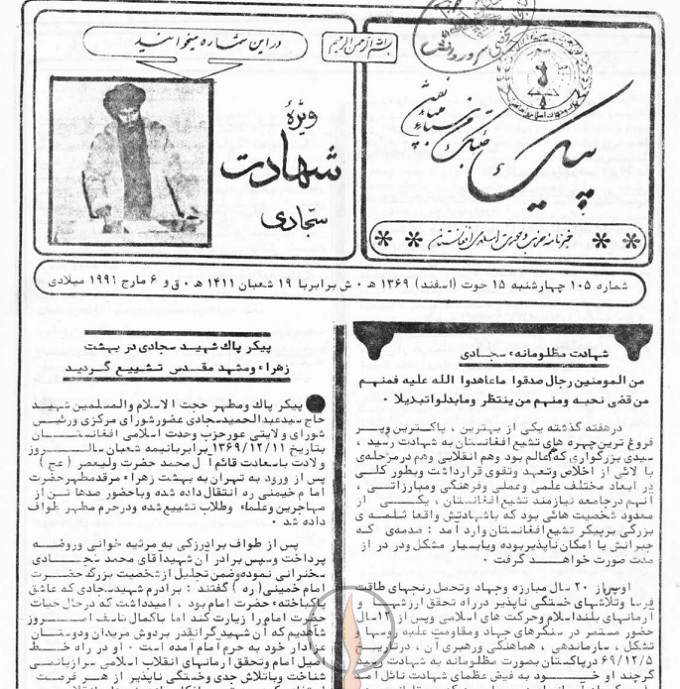 در این شماره میخوانید
بسم الله الرحمن الرحیم
ویژهٔ
شهادت
سجادی
پیک
خبرنامه حزب وحدت اسلامی افغانستان
شماره ۱۰۵ چهارشنبه ۱۵ حوت (اسفند) ۱۳۶۹ ه‍ ۰ ش برابر با ۱۹ شعبان ۱۴۱۱ ه‍ ۰ ق و ۶ مارچ ۱۹۹۱ میلادی
شهادت مظلومانهء سجادی
من المومنین رجال صدقوا ماعاهدوا الله علیه فمنهم
من قضی نحبه ومنهم من ینتظر ومابدلوا تبدیلا ۰
درهفته گذشته یکی از بهترین ، پاکترین وپر
فروغ ترین چهره های تشیع افغانستان به شهادت رسید ،
سیدی بزرگواری که هم عالم بود وهم انقلابی وهم درمرحله‌ی
با لائی از اخلاص وتعهد وتقوی قرارداشت وبطور کلی
در ابعاد مختلف علمی وعملی وفرهنگی ومبارزاتی ،
آنهم درجامعه نیازمند تشیع افغانستان ، یکی از
معدود شخصیت هائی بود که باشهادتش واقعا ثلمه ی
بزرگی برپیکر تشیع افغانستان وارد آمد : صدمه‌ی که
جبرانش یا امکان ناپذیربوده ویابسیار مشکل ودر در از
مدت صورت خواهد گرفت ۰
اوپس از ۲۰ سال مبارزه وجهاد وتحمل رنجهای طاقت
فرسا وتلاشهای خستگی ناپذیر درراه تحقق ارزشها و
آرمانهای بلند اسلام وحرکت های اسلامی وپس از ۱۳سال
حضور مستمر در سنگرهای جهاد ومقاومت علیه روسها و
تشکل ، سازماندهی ، هماهنگی ورهبری آن ، درتاریخ
۶۹/۱۲/۵ درپاکستان بصورت مظلومانه به شهادت رسید
گرچند او خود به فیض عظمای شهادت نائل آمد
پیکر پاك شهید سجادی در بهشت
زهراء ومشهد مقدس تشییع گردید
پیکر پاك ومطهر حجت الاسلام والمسلمین شهید
حاج سیدعبدالحمید سجادی عضورشورای مرکزی ورئیس
شورای ولایتی غورحزب وحدت اسلامی افغانستان
بتاریخ ۱۳۶۹/۱۲/۱۱ برابربانیمه شعبان سالروز
ولادت باسعادت قائم آل محمد حضرت ولیعصر (عج)
پس از ورود به تهران به بهشت زهراء مرقدمطهرحضرت
امام خمینی ره انتقال داده شده وباحضور صدها تن از
مهاجرین وعلماء وطلاب تشییع شده ودرحرم مطهر طواف
داده شد ۰
پس از طواف برادرزکی به مرثیه خوانی وروضه
پرداخت وسپس برادر آن شهید آقای محمد سجادی
سخنرانی نموده وضمن تجلیل از شخصیت بزرگ حضرت
امام خمینی (ره) گفتند : برادرم شهیدسجادی که عاشق
پاکباخته‌ء حضرت امام بود ، امیدداشت که درحال حیات
حضرت امام را زیارت کند اما باکمال تاسف امروز
شاهدیم که آن شهید گرانقدر بردوش مریدان ودوستان
عزادار خود به حرم امام آمده است ۰ او در راه خط
اصیل امام وتحقق آرمانهای انقلاب اسلامی سرازپانمی
شناخت وباتلاش جدی وخستگی ناپذیر از هر فرصت